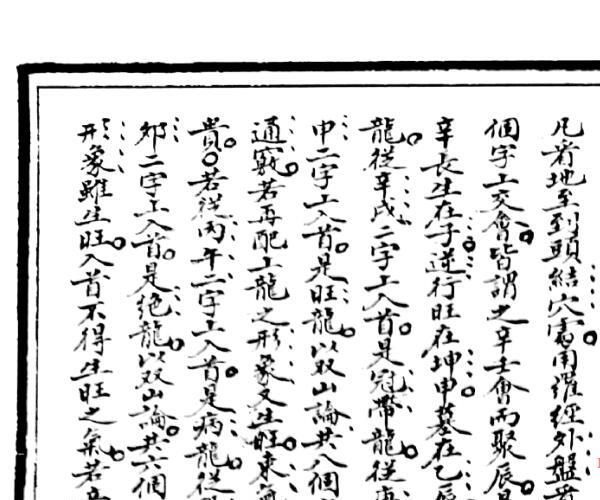 凡看地至到頭結穴處用羅經外盤
個字上交會皆謂之辛壬會而聚辰
辛長生在子逆行旺在坤申墓在乙辰
龍從辛戌二字上入首是冠帶龍從
申二字上入首是旺龍以双山論共八個
通竅若再配上龍之形象又生旺東氣
貴若從丙午二字上入首是病龍從
夘二字上入首是絕龍以双山論共六個
形象雖生旺入首不得生旺之氣若